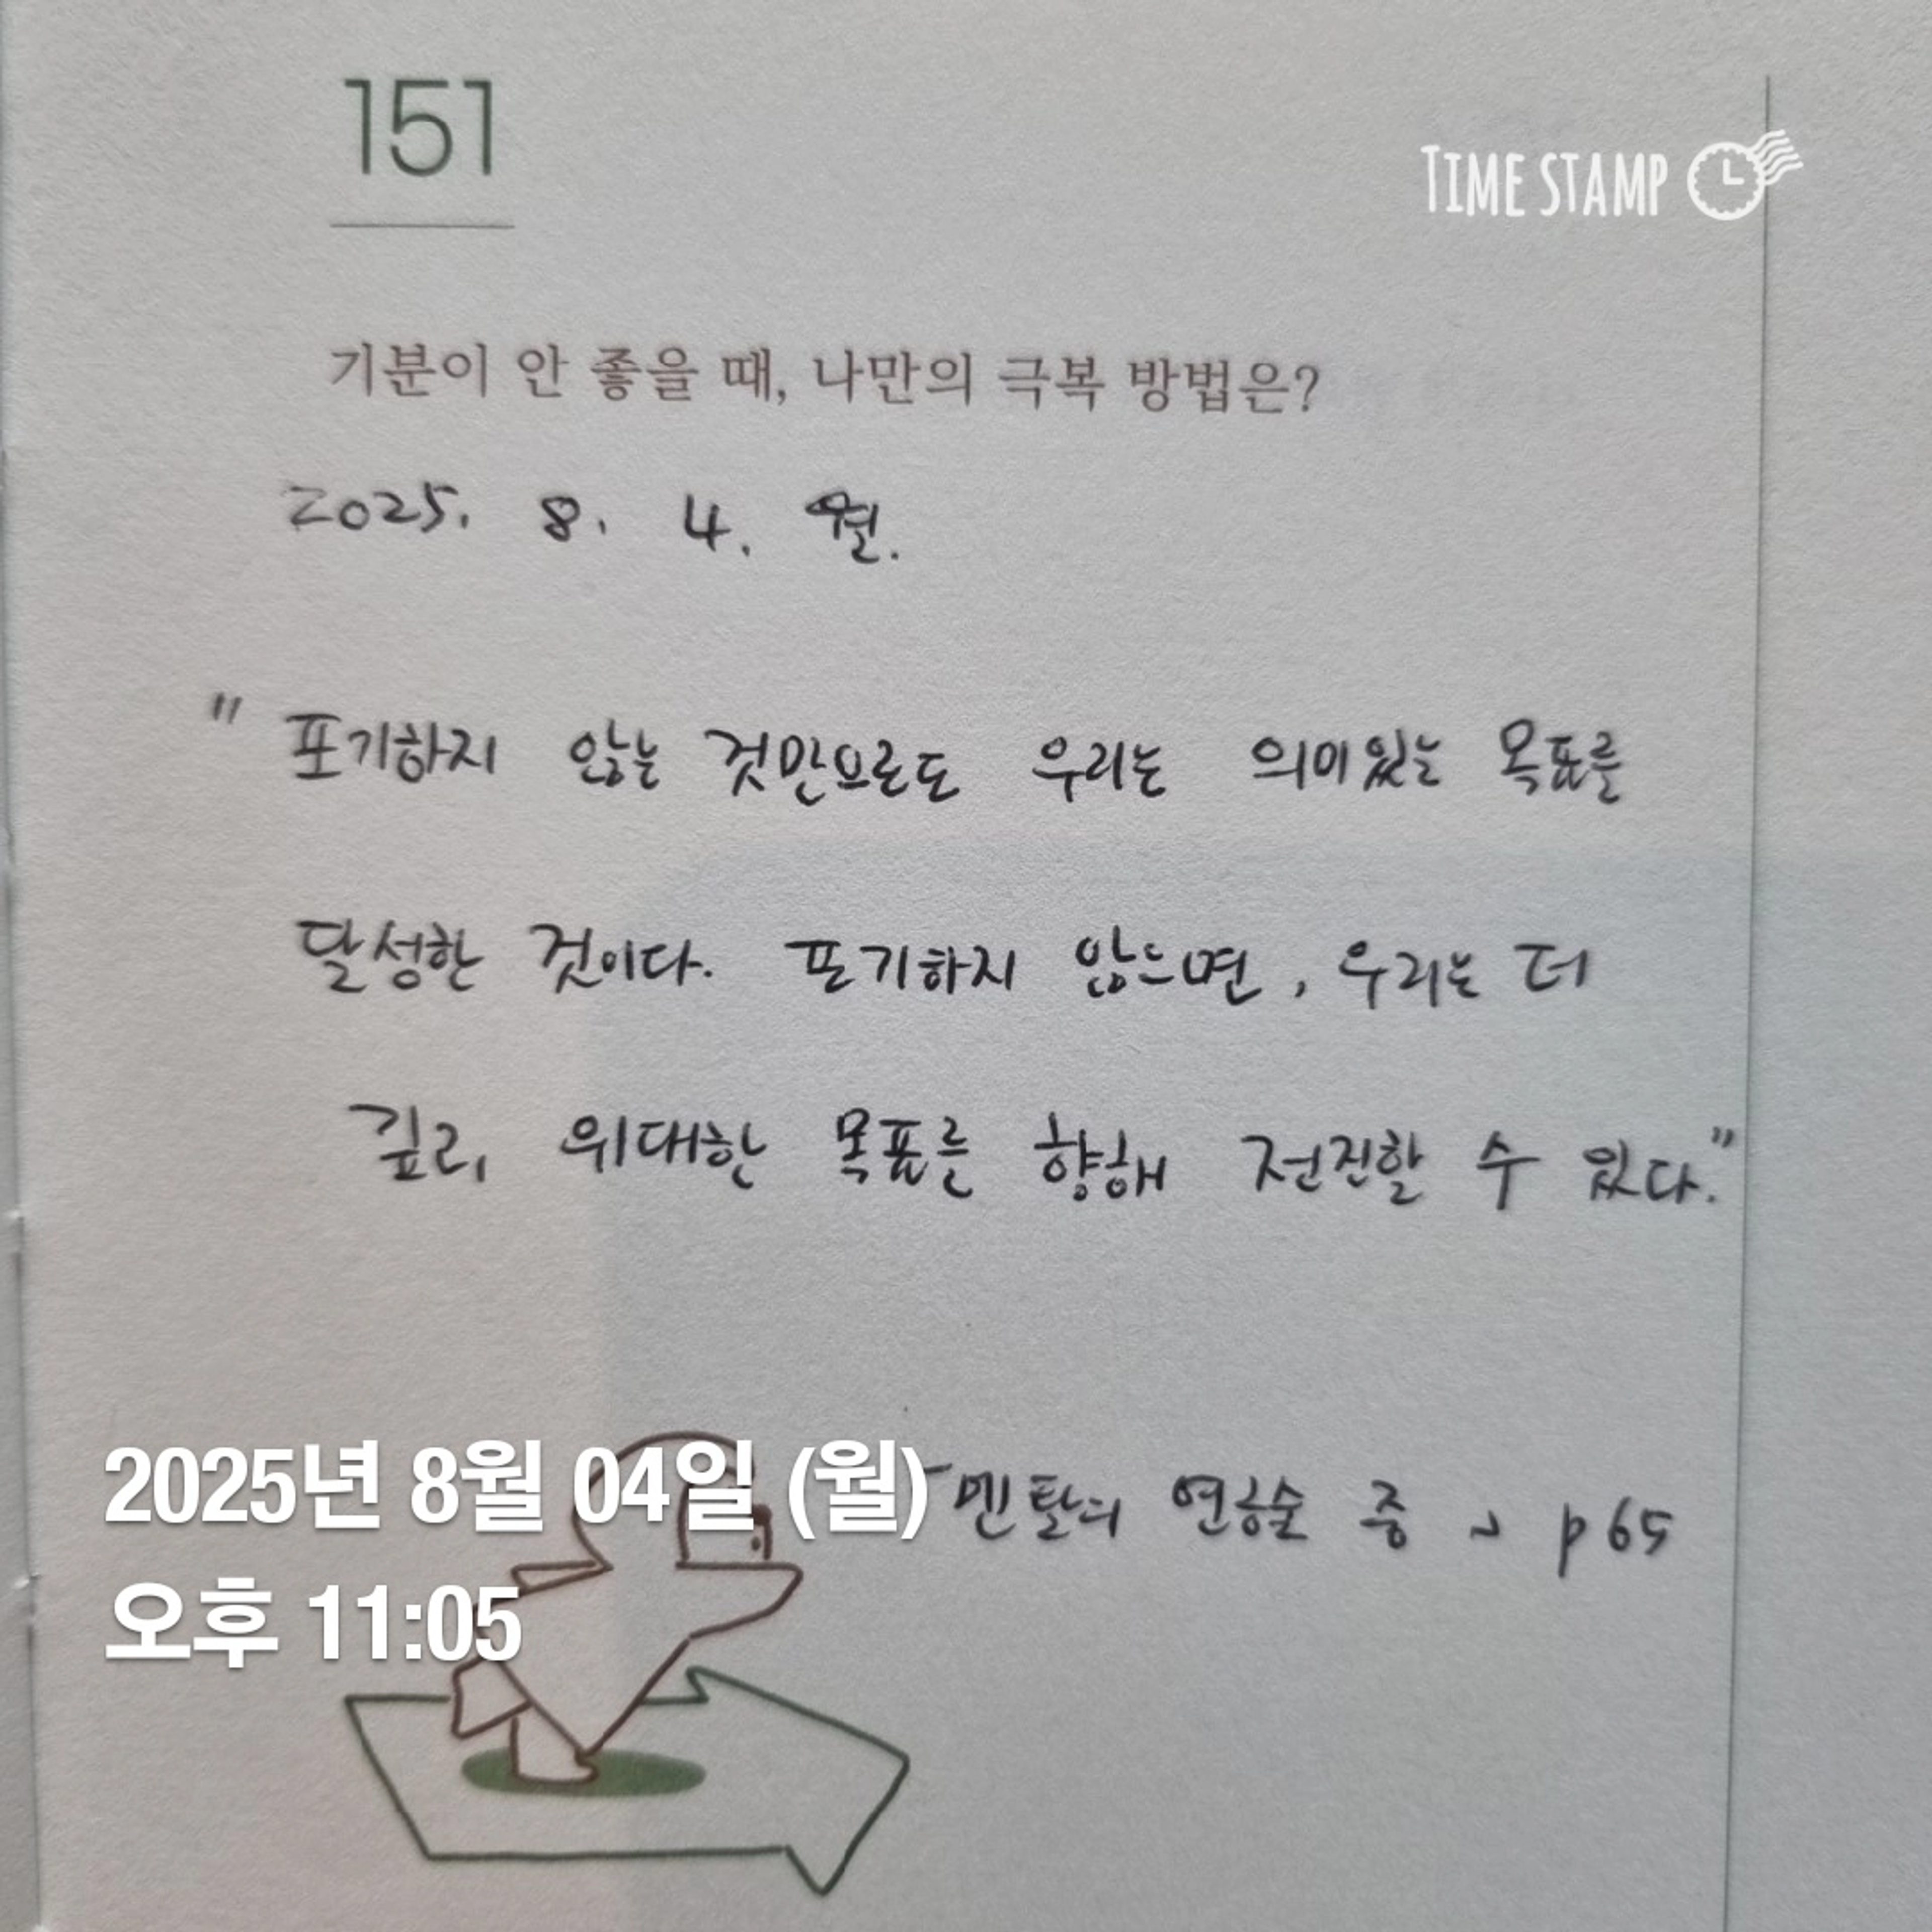 151
TIME STAMP
기분이 안 좋을 때, 나만의 극복 방법은?
2025. 8. 4. 월.
" 포기하지 않는 것만으로도 우리는 의미있는 목표를
달성한 것이다. 포기하지 않으면, 우리는 더
깊고, 위대한 목표를 향해 전진할 수 있다."
- 멘탈의 연금술 중 p65
2025년 8월 04일 (월)
오후 11:05